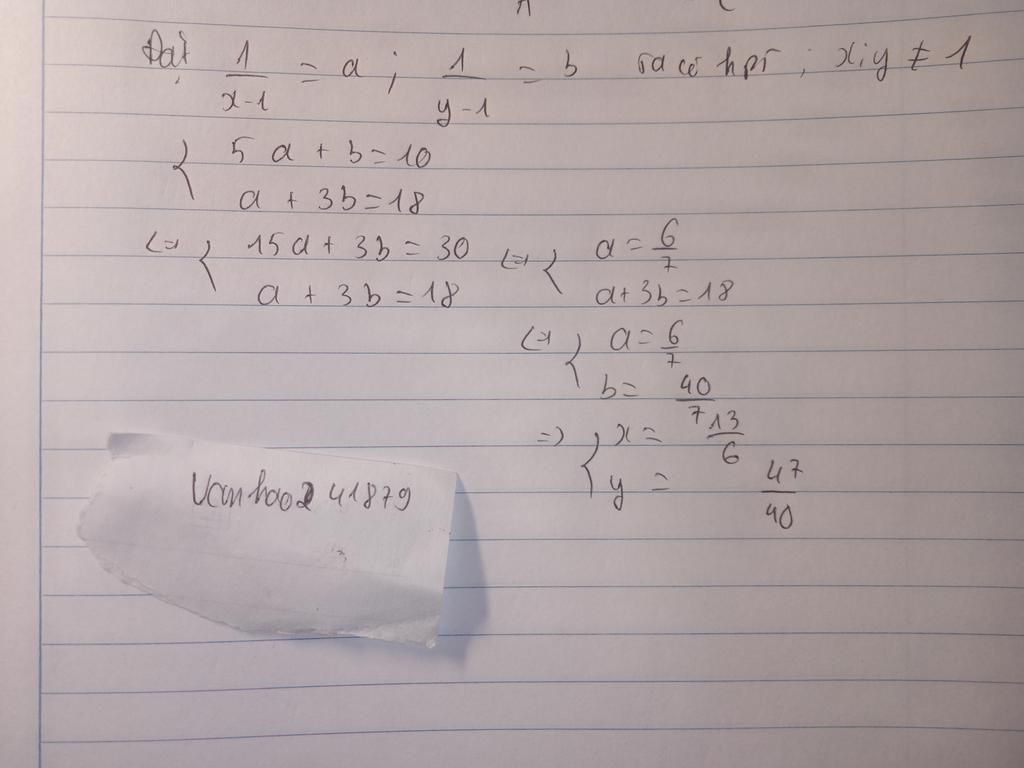 Đặt 1/(x-1) = a ; 1/(y-1) = b ta có hpt ; x;y ≠ 1
{ 5a + b = 10
a + 3b = 18
<=> { 15a + 3b = 30 <=> { a = 6/7
a + 3b = 18 a+3b = 18
<=> { a = 6/7
b = 40/7
=> { x = 13/6
y = 47/40
Vanhao2 41879